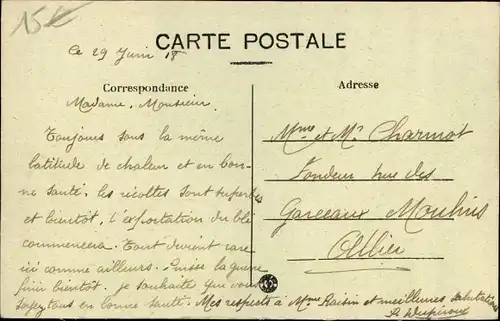 15
CARTE POSTALE
Le 29 Juin 18
Correspondance
Adresse
Madame, Monsieur,
Toujours sous la même
latitude de chaleur et en bon-
ne santé. les récoltes sont superbes
et bientôt, l'exportation du blé
commencera. Tout devient rare
ici comme ailleurs. Puisse la guerre
finir bientôt. je souhaite que vous
soyez tous en bonne santé. Mes respects à Mme Raisin et meilleures salutations
Mme et Mr Charmot
Fondeur rue des
Garceaux Moulins
Allier